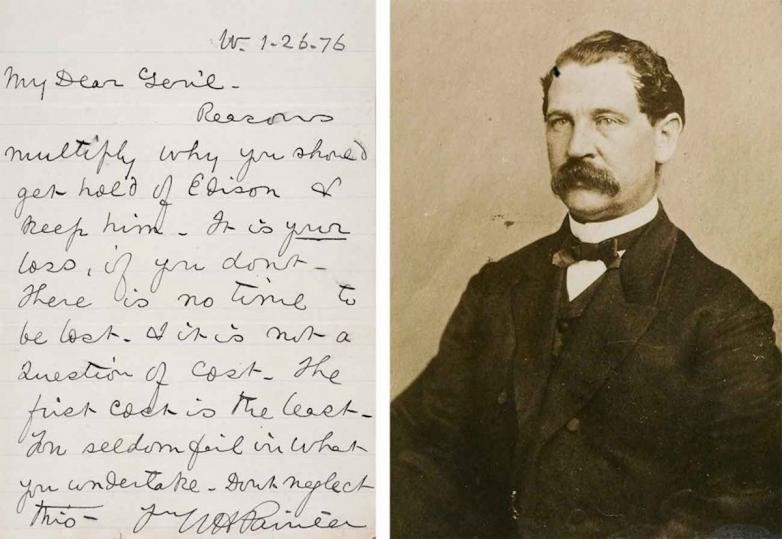 W. 1-26-76
My Dear Gen'l -
Reasons
multiply why you should
get hold of Edison &
keep him - It is your
loss, if you dont -
There is no time to
be lost - & it is not a
question of cost - The
first cost is the least -
You seldom fail in what
you undertake - Dont neglect
this - Yrs WHPainter